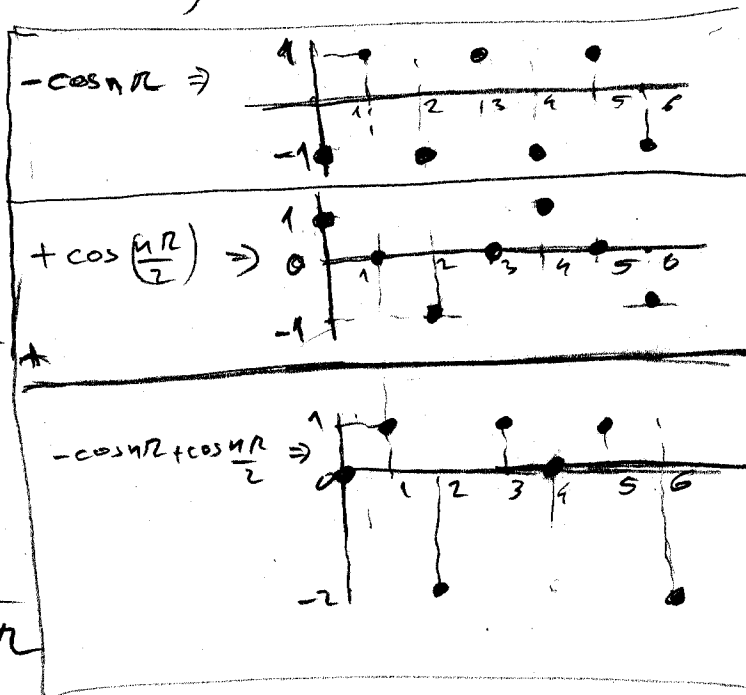 -cosnπ ⇒
1
-1
1 2 3 4 5 6
+ cos(nπ/2) ⇒
1
0
-1
1 2 3 4 5 6
+
-cosnπ+cos nπ/2 ⇒
1
0
-2
1 2 3 4 5 6
π